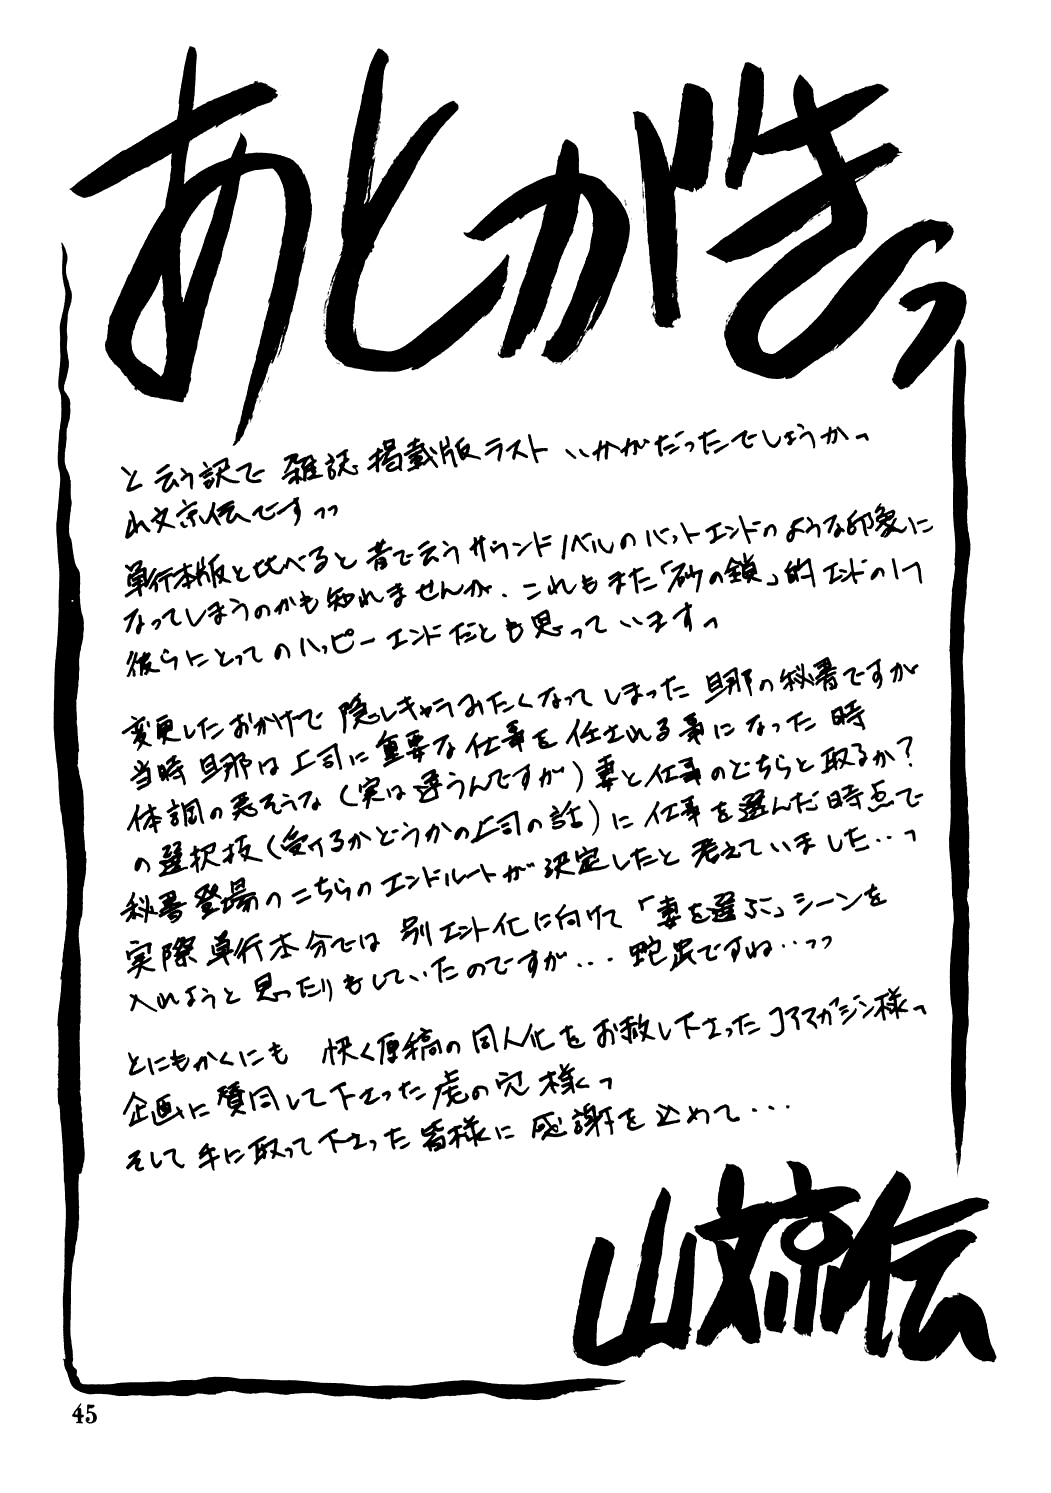 あとがきっ
と云う訳で 雑誌掲載版ラスト いかがだったでしょうかっ
山文京伝ですっっ
単行本版と比べると昔で云うサウンドノベルのバットエンドのような印象に
なってしまうのかも知れませんが、これもまた「砂の鎖」的エンドの1つ
彼らにとってのハッピーエンドだとも思っていますっ
変更したおかげで 隠しキャラみたくなってしまった 旦那の秘書ですが
当時 旦那は上司に重要な仕事を任される事になった時
体調の悪そうな(実は違うんですが)妻と仕事のどちらと取るか?
の選択技(受けるかどうかの上司の話)に仕事を選んだ時点で
秘書登場のこちらのエンドルートが決定したと考えていました‥っ
実際 単行本分では 別エンド化に向けて「妻を選ぶ」シーンを
入れようと思ったりもしていたのですが... 蛇足ですね‥っっ
とにもかくにも 快く原稿の同人化をお赦し下さったコアマガジン様っ
企画に賛同して下さった虎の穴様っ
そして手に取って下さった皆様に 感謝を込めて...
山文京伝
45